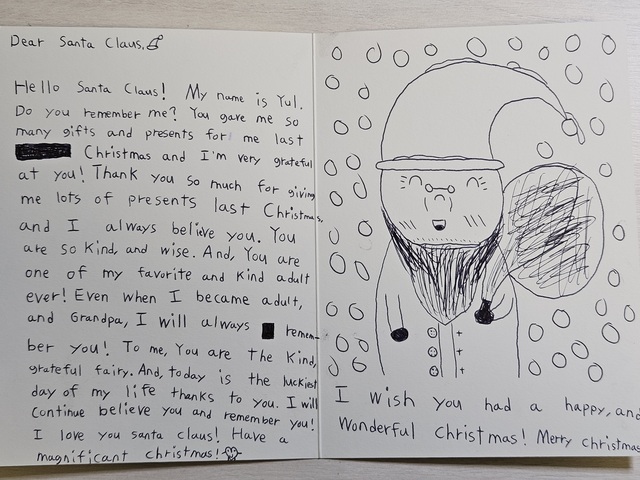 Dear Santa Claus,
Hello Santa Claus! My name is Yul.
Do you remember me? You gave me so
many gifts and presents for me last
Christmas and I'm very grateful
at you! Thank you so much for giving
me lots of presents last Christmas,
and I always believe you. You
are so kind, and wise. And, You are
one of my favorite and kind adult
ever! Even when I became adult,
and Grandpa, I will always remem-
ber you! To me, You are the kind,
grateful fairy. And, today is the luckiest
day of my life thanks to you. I will
continue believe you and remember you!
I love you santa claus! Have a
magnificant christmas!
I wish you had a happy, and
Wonderful Christmas! Merry christmas